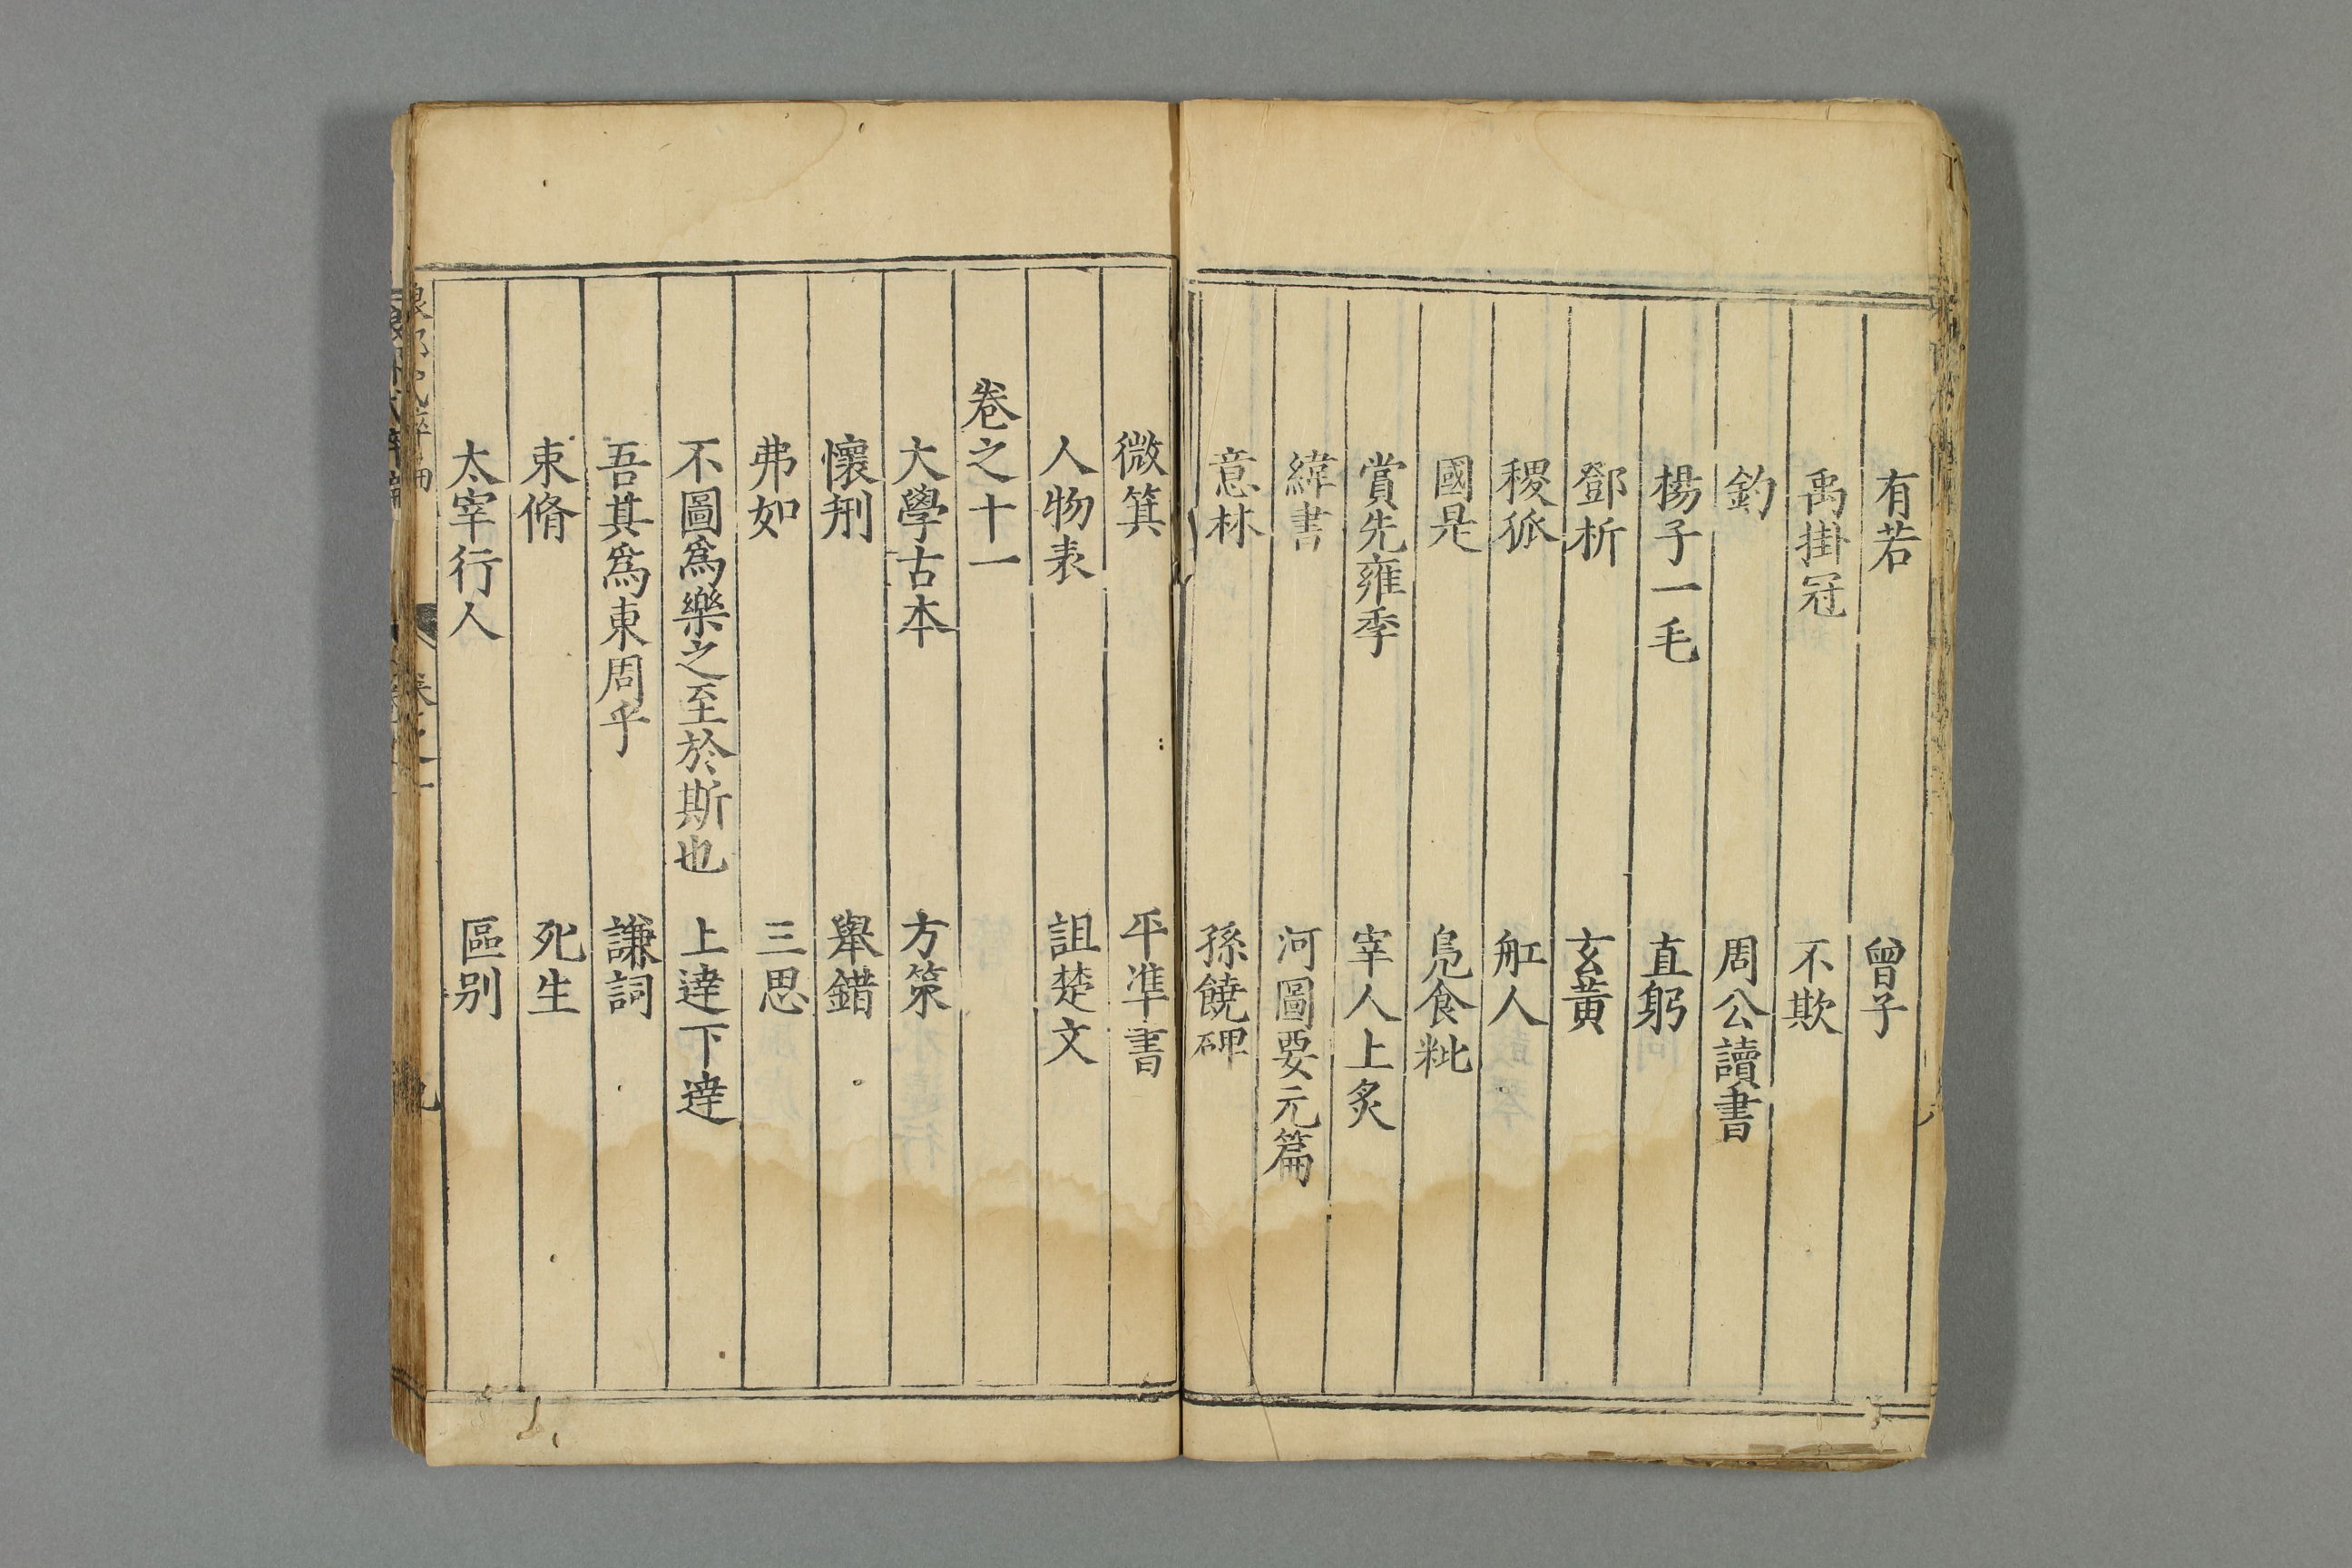 有若　曾子
禹掛冠　不欺
釣　周公讀書
楊子一毛　直躬
鄧析　玄黃
稷狐　舡人
國是　鳧食粃
賞先雍季　宰人上炙
緯書　河圖要元篇
意林　孫饒碑
微箕　平準書
人物表　詛楚文
卷之十一
大學古本　方策
懷刑　舉錯
弗如　三思
不圖爲樂之至於斯也　上達下達
吾其爲東周乎　謙詞
束脩　死生
太宰行人　區别